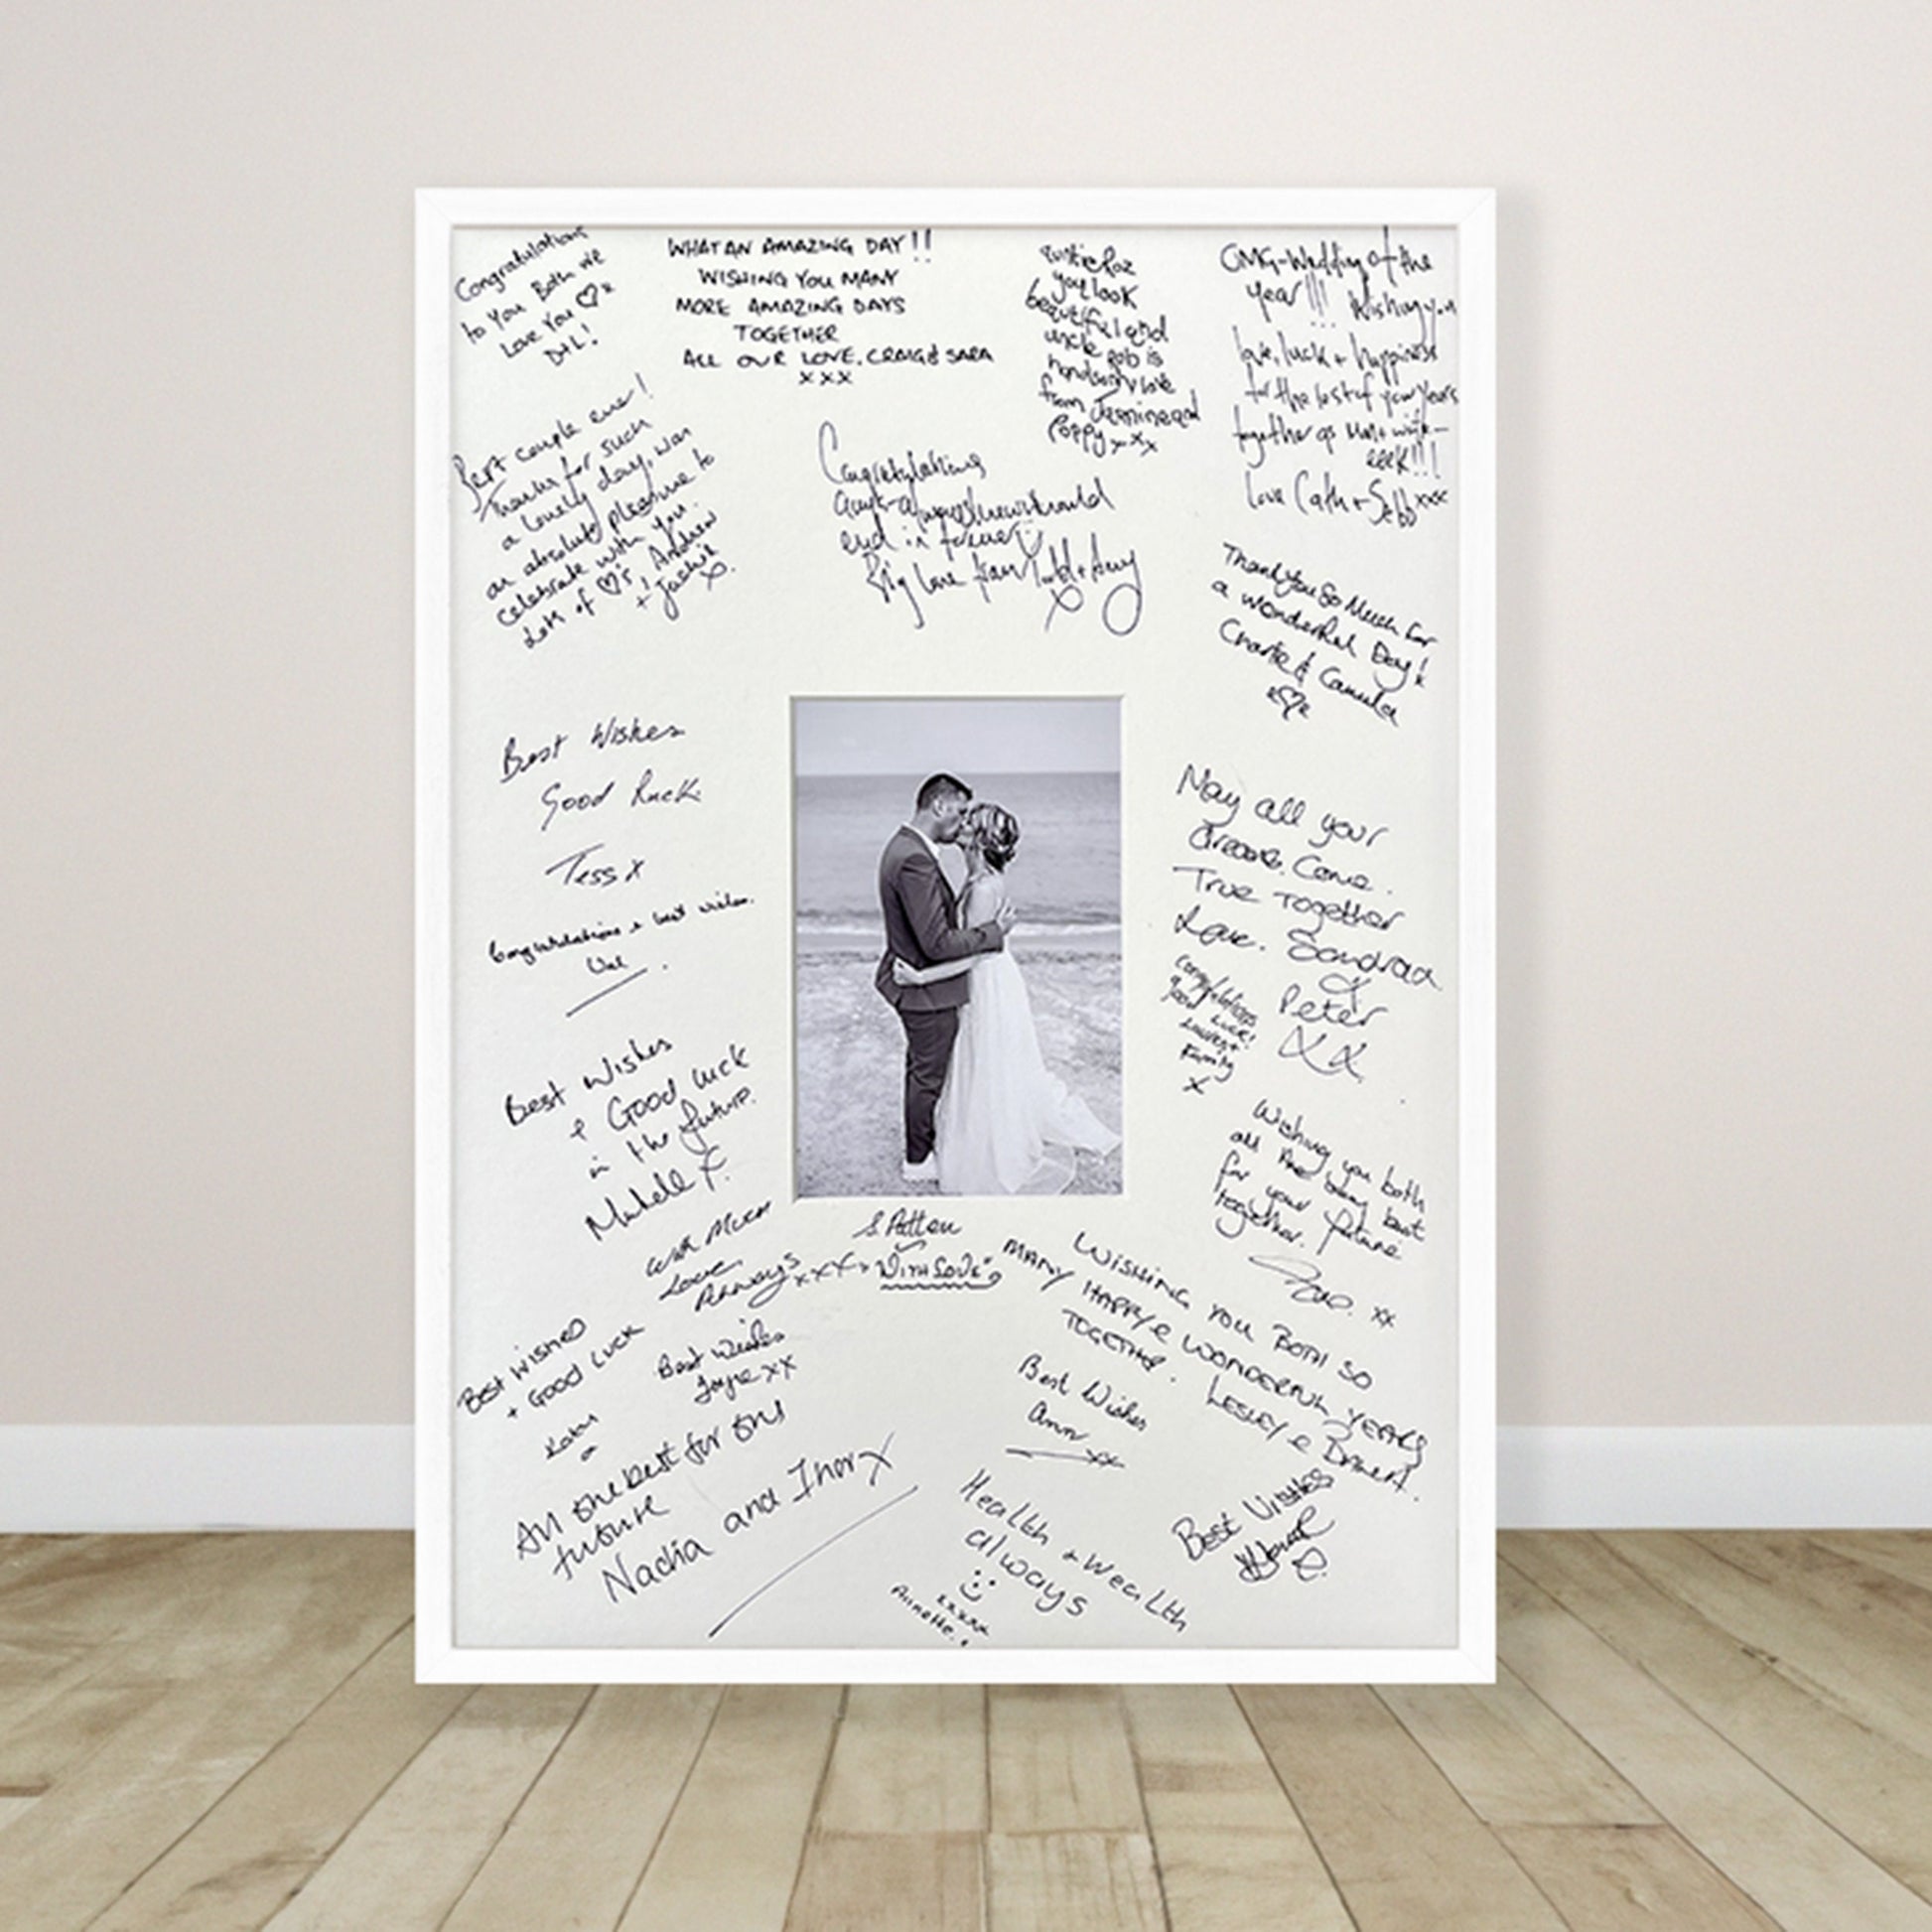 Congratulations
to You Both we
Love You
D+L!
WHAT AN AMAZING DAY!!
WISHING YOU MANY
MORE AMAZING DAYS
TOGETHER
ALL OUR LOVE. CRAIG & SARA
xxx
you look
beautiful and
uncle Rob is
handsom love
from Jasmine and
Poppy xxx
OMG-Wedding of the
year!!! Wishing you
love, luck + happiness
for the rest of your years
together as Man + wife-
eeek!!!
love Cath + Sebb xxx
Best couple ever!
Thanks for such
a lovely day, was
an absolute pleasure to
celebrate with you.
Lots of ♡'s, Andrew
+ Jackie
x.
Congratulations
end in forever
Big love from Todd + Amy
x
Thank You So Much for
a wonderful Day!
Charlie & Camilla
Best Wishes
Good Luck
Tess x
Congratulations & best wishes.
Val
May all your
Dreams Come.
True Together
Love. Sandra
&
Peter
xx
Congratulations
good Luck!
Lauren +
Family
x
Best Wishes
& Good luck
in the future.
Michelle x.
Wishing you both
all the very best
for your future
together.
xx
With Much
Love
Always xxxx
S. Patten
"With Love"
WISHING YOU BOTH SO
MANY HAPPY & WONDERFUL YEARS
TOGETHER. LESLEY &
Best Wishes
+ Good Luck
Best Wishes
Jayne xx
Best Wishes
Ann xx
All the best for the
future
Nadia and Ihor x
Health + Wealth
always
xxxxx
Annette.
Best Wishes